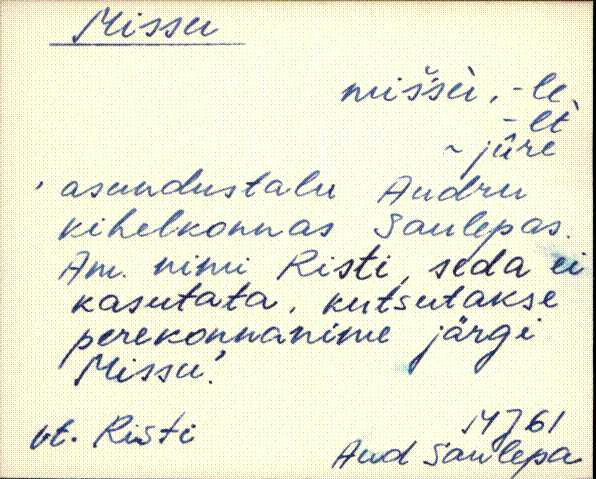 Missu
mišsù, -le
-lt
~ jûre
'asundustalu Audru
kihelkonnas Saulepas.
Am. nimi Risti, seda ei
kasutata, kutsutakse
perekonnanime järgi
Missu'.
vt. Risti
MJ 61
Aud Saulepa